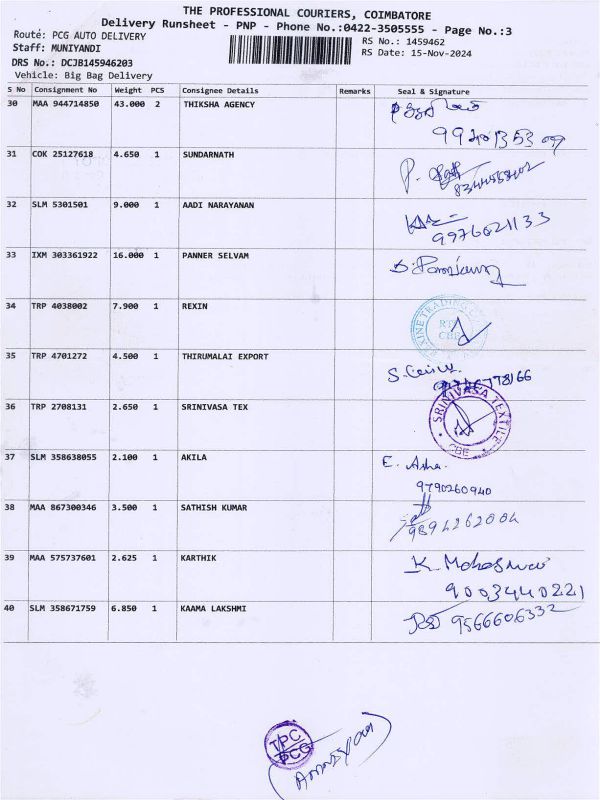 THE PROFESSIONAL COURIERS, COIMBATORE
Delivery Runsheet - PNP - Phone No.:0422-3505555 - Page No.:3
Route: PCG AUTO DELIVERY
RS No.: 1459462
Staff: MUNIYANDI
RS Date: 15-Nov-2024
DRS No.: DCJB145946203
Vehicle: Big Bag Delivery
S No Consignment No Weight PCS Consignee Details Remarks Seal & Signature
30 MAA 944714850 43.000 2 THIKSHA AGENCY
31 COK 25127618 4.650 1 SUNDARNATH
32 SLM 5301501 9.000 1 AADI NARAYANAN
9976621133
33 IXM 303361922 16.000 1 PANNER SELVAM
34 TRP 4038002 7.900 1 REXIN
CBE
35 TRP 4701272 4.500 1 THIRUMALAI EXPORT
36 TRP 2708131 2.650 1 SRINIVASA TEX
SRINIVASA TEXTILE
CBE
37 SLM 358638055 2.100 1 AKILA
E. Asha
9790260940
38 MAA 867300346 3.500 1 SATHISH KUMAR
9894262004
39 MAA 575737601 2.625 1 KARTHIK
9003440221
40 SLM 358671759 6.850 1 KAAMA LAKSHMI
9566606332
TPC
PCG